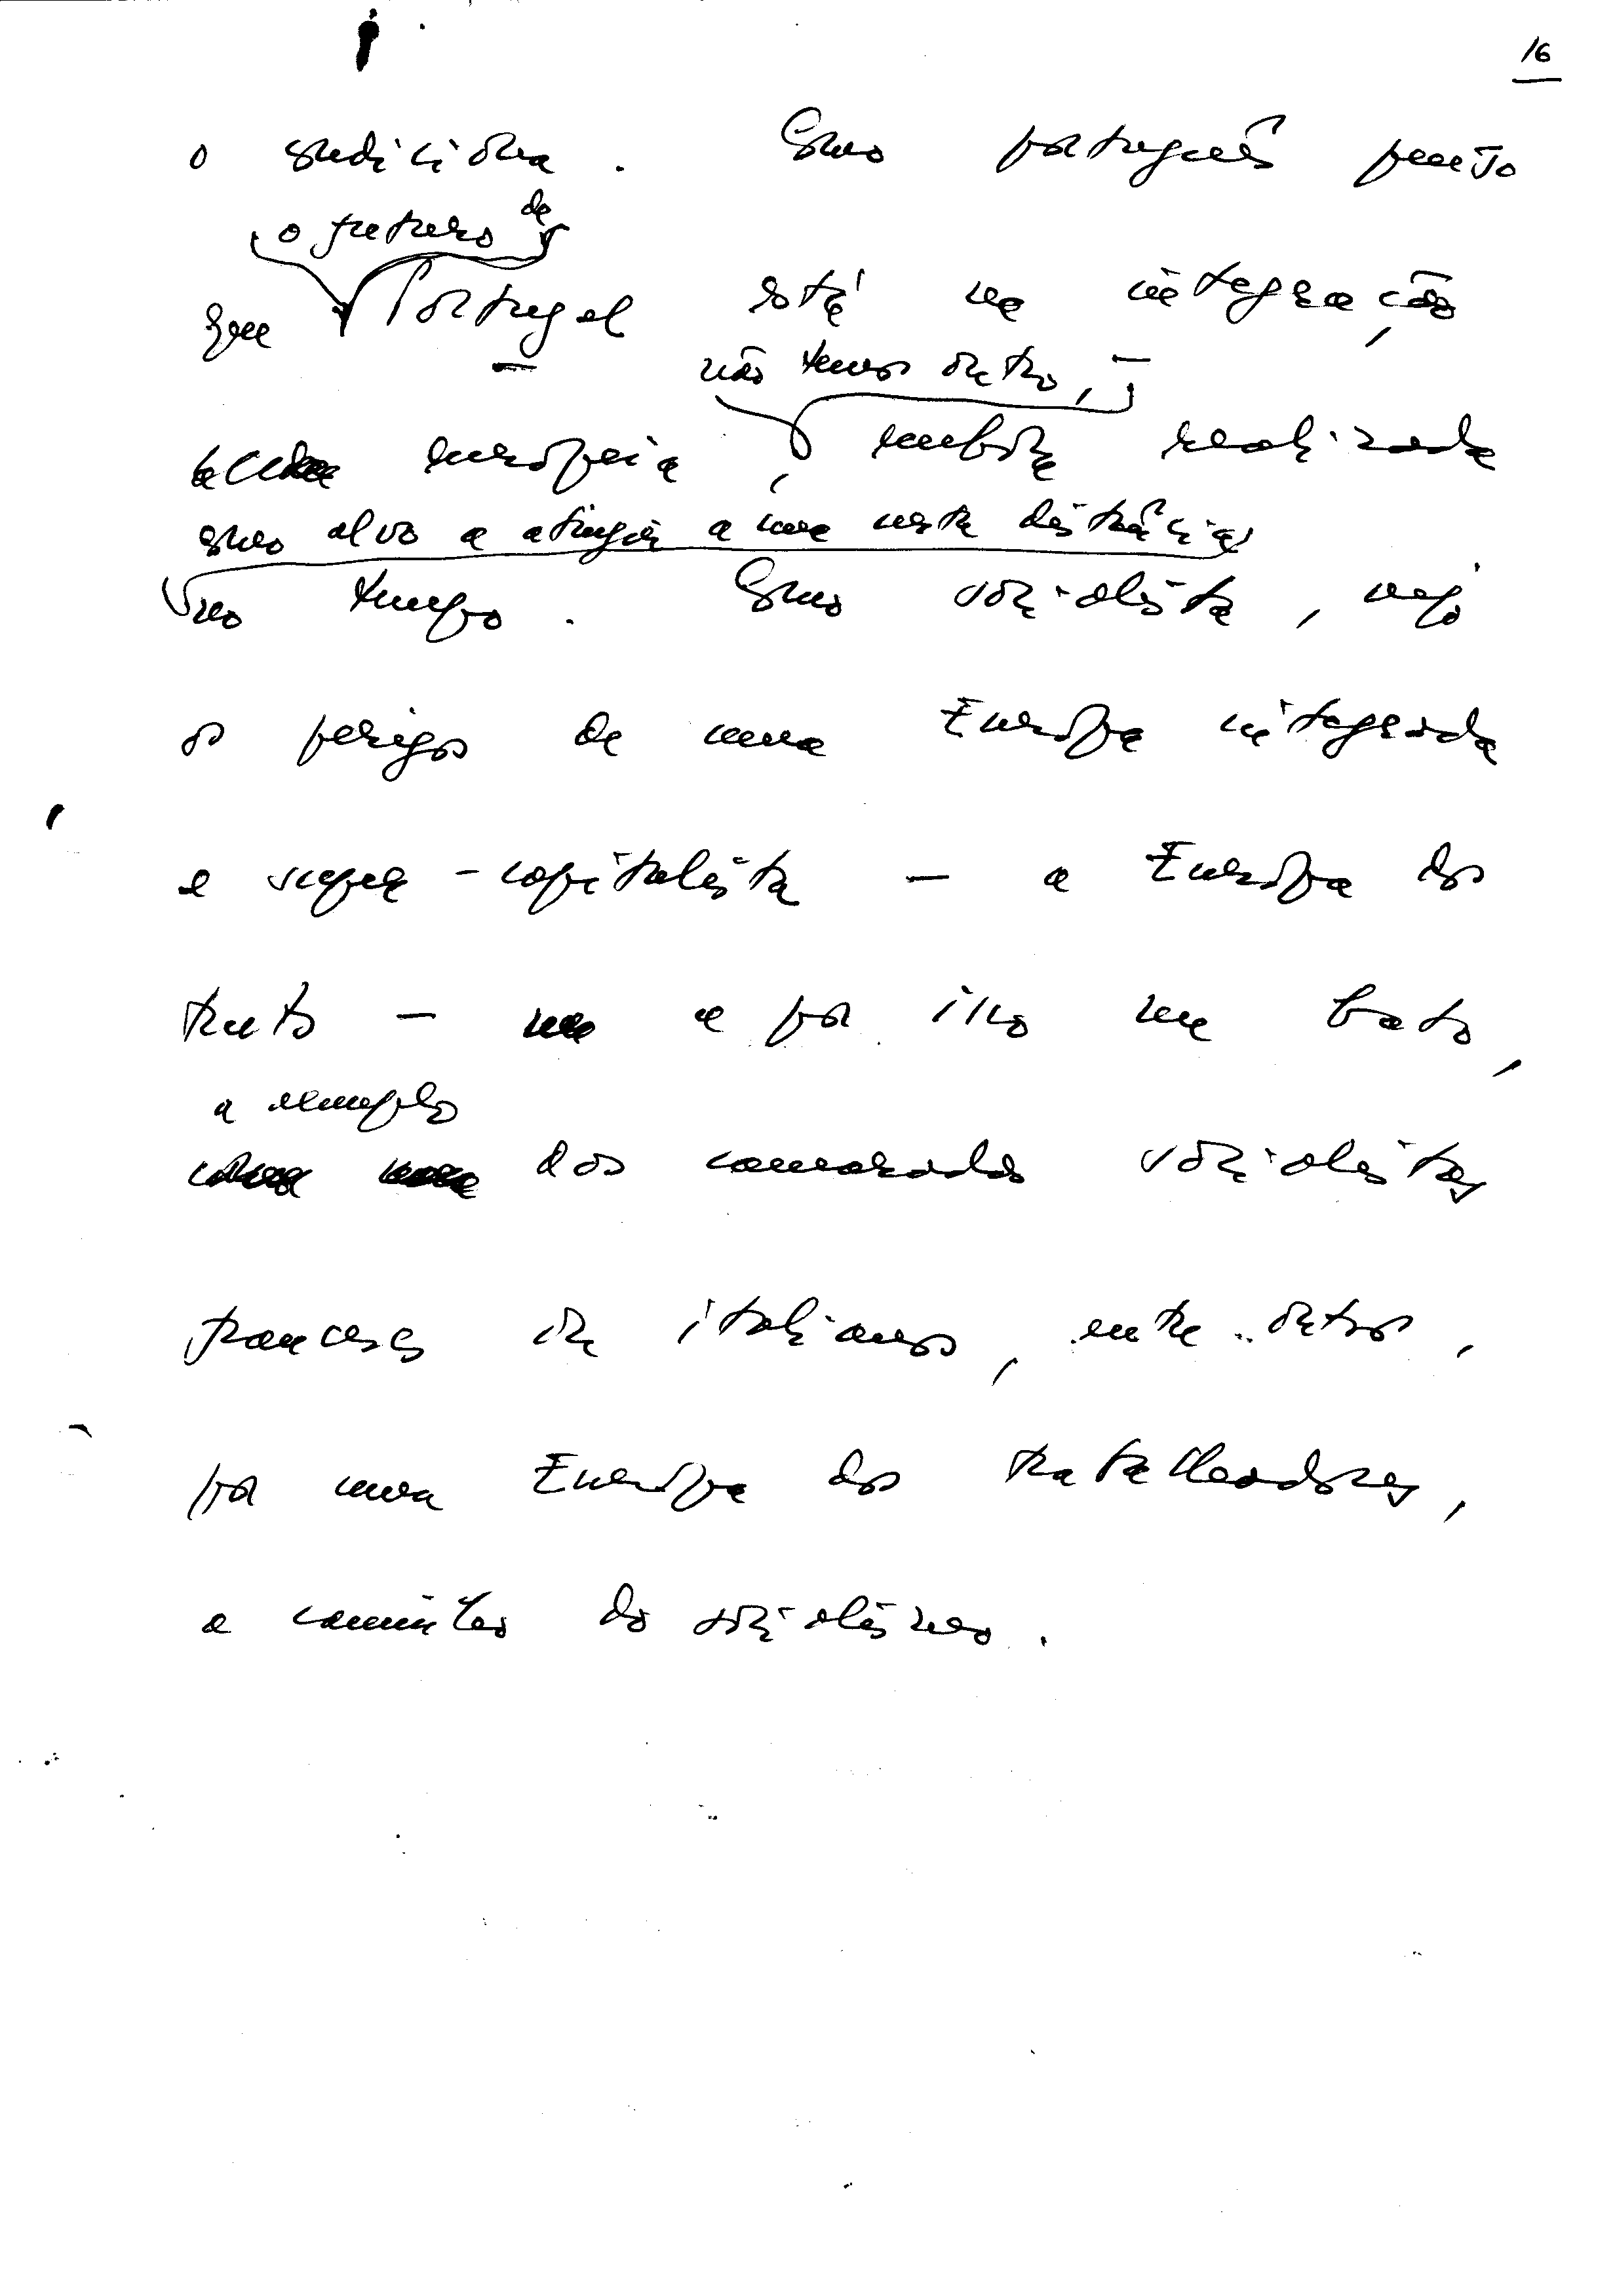 16
o condiciona. Como português penso
o futuro de
que Portugal está na integração
não temos outro, –
europeia, embora realizada
como alvo a atingir a uma certa distância
no tempo. Como socialista, vejo
os perigos de uma Europa integrada
e super-capitalista – a Europa dos
trusts – e por isso me bato,
a exemplo
dos camaradas socialistas
franceses ou italianos, entre outros,
por uma Europa dos trabalhadores,
a caminho do socialismo.